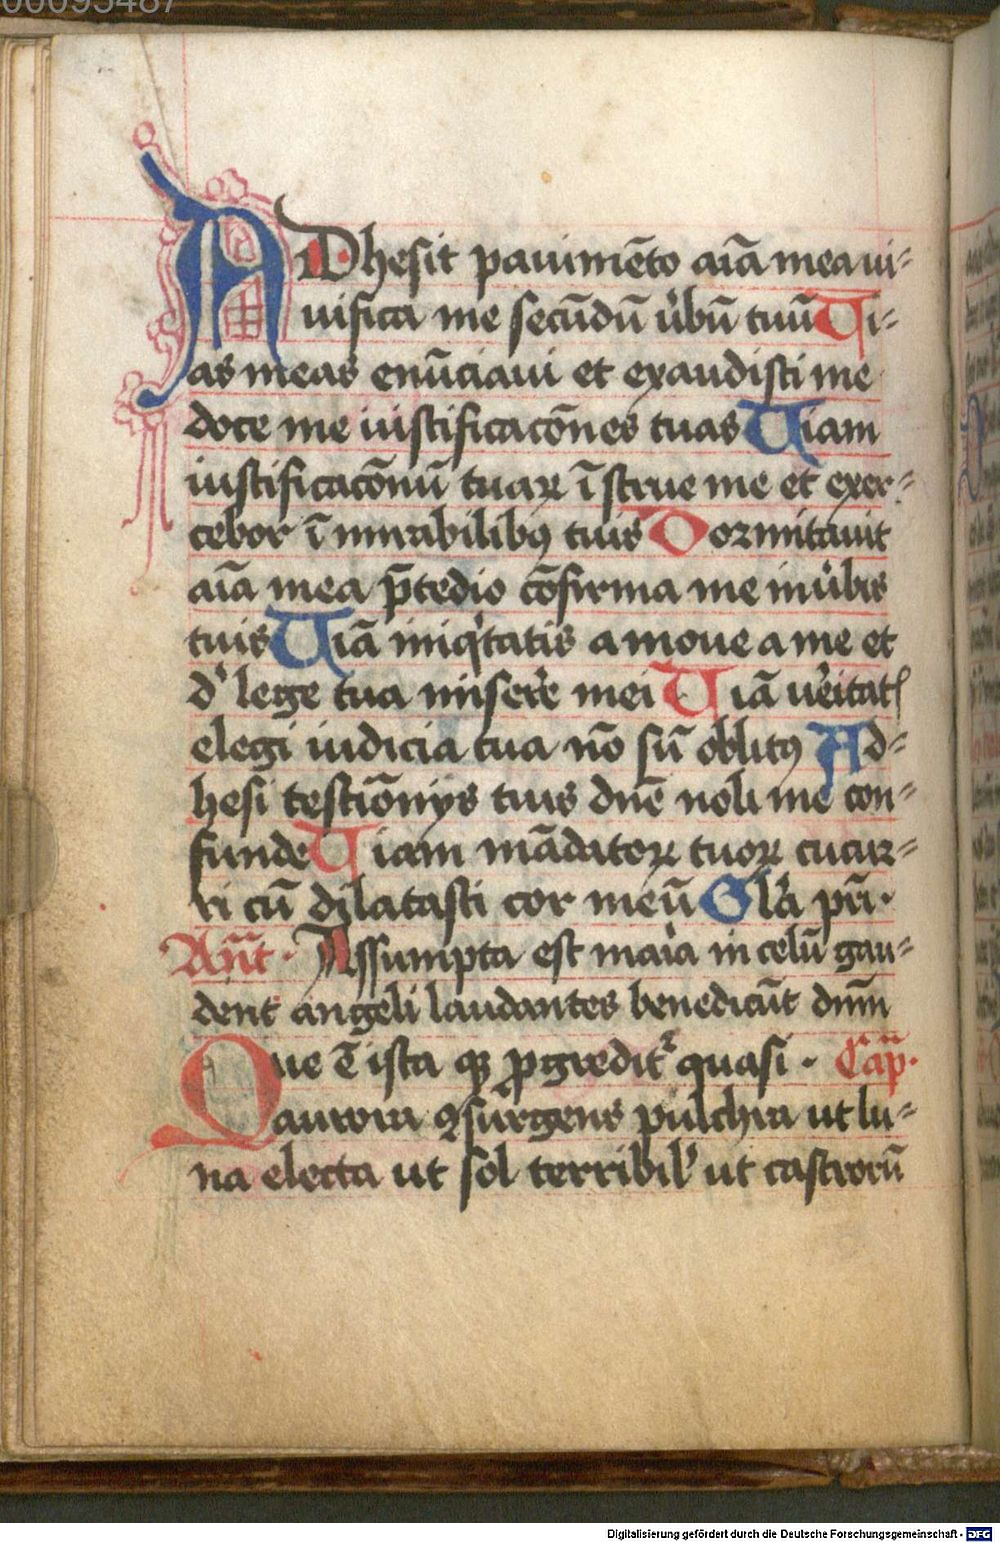 00095487
ADhesit pauimēto aīa mea ui-
uifica me secūdū ûbū tuū Ui-
as meas enūciaui et exaudisti me
doce me iustificacōnes tuas Uiam
iustificacōnū tuaꝝ ī strue me et exer-
cebor ī mirabilibꝰ tuis Dormitauit
aīa mea p̄ tedio cōfirma me in ûbis
tuis Uiā iniqͥtatis amoue a me et
dˀ lege tua miserˀe mei Uiā uˀitatꝭ
elegi iudicia tua nō sū oblitꝰ Ad-
hesi testiōnijs tuis dn̄e noli me con-
funde Uiam mādatoꝝ tuoꝝ cucur-
ri cū dilatasti cor meū Glˀa pr̄i·
An̄t· Assumpta est maˀia in celū gau-
dent angeli laudantes benedicūt dn̄m
Que ē ista qͣ ꝓgreditˀ quasi · Cap̄·
aurora ꝯsurgens pulchra ut lu-
na electa ut sol terribilˀ ut castrorū
Digitalisierung gefördert durch die Deutsche Forschungsgemeinschaft - DFG